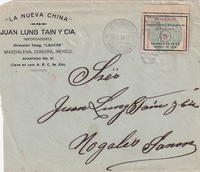 "LA NUEVA CHINA"
JUAN LUNG TAIN Y CIA.
IMPORTADORES.
Dirección Teleg. "LAUCHE"
MAGDALENA, SONORA, MEXICO.
APARTADO No. 51.
Clave en uso A. B. C. 5a. Edc.
5
Juan Lung Tain y Cía
Nogales Sonora